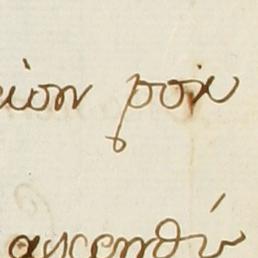 cion por
ascendi